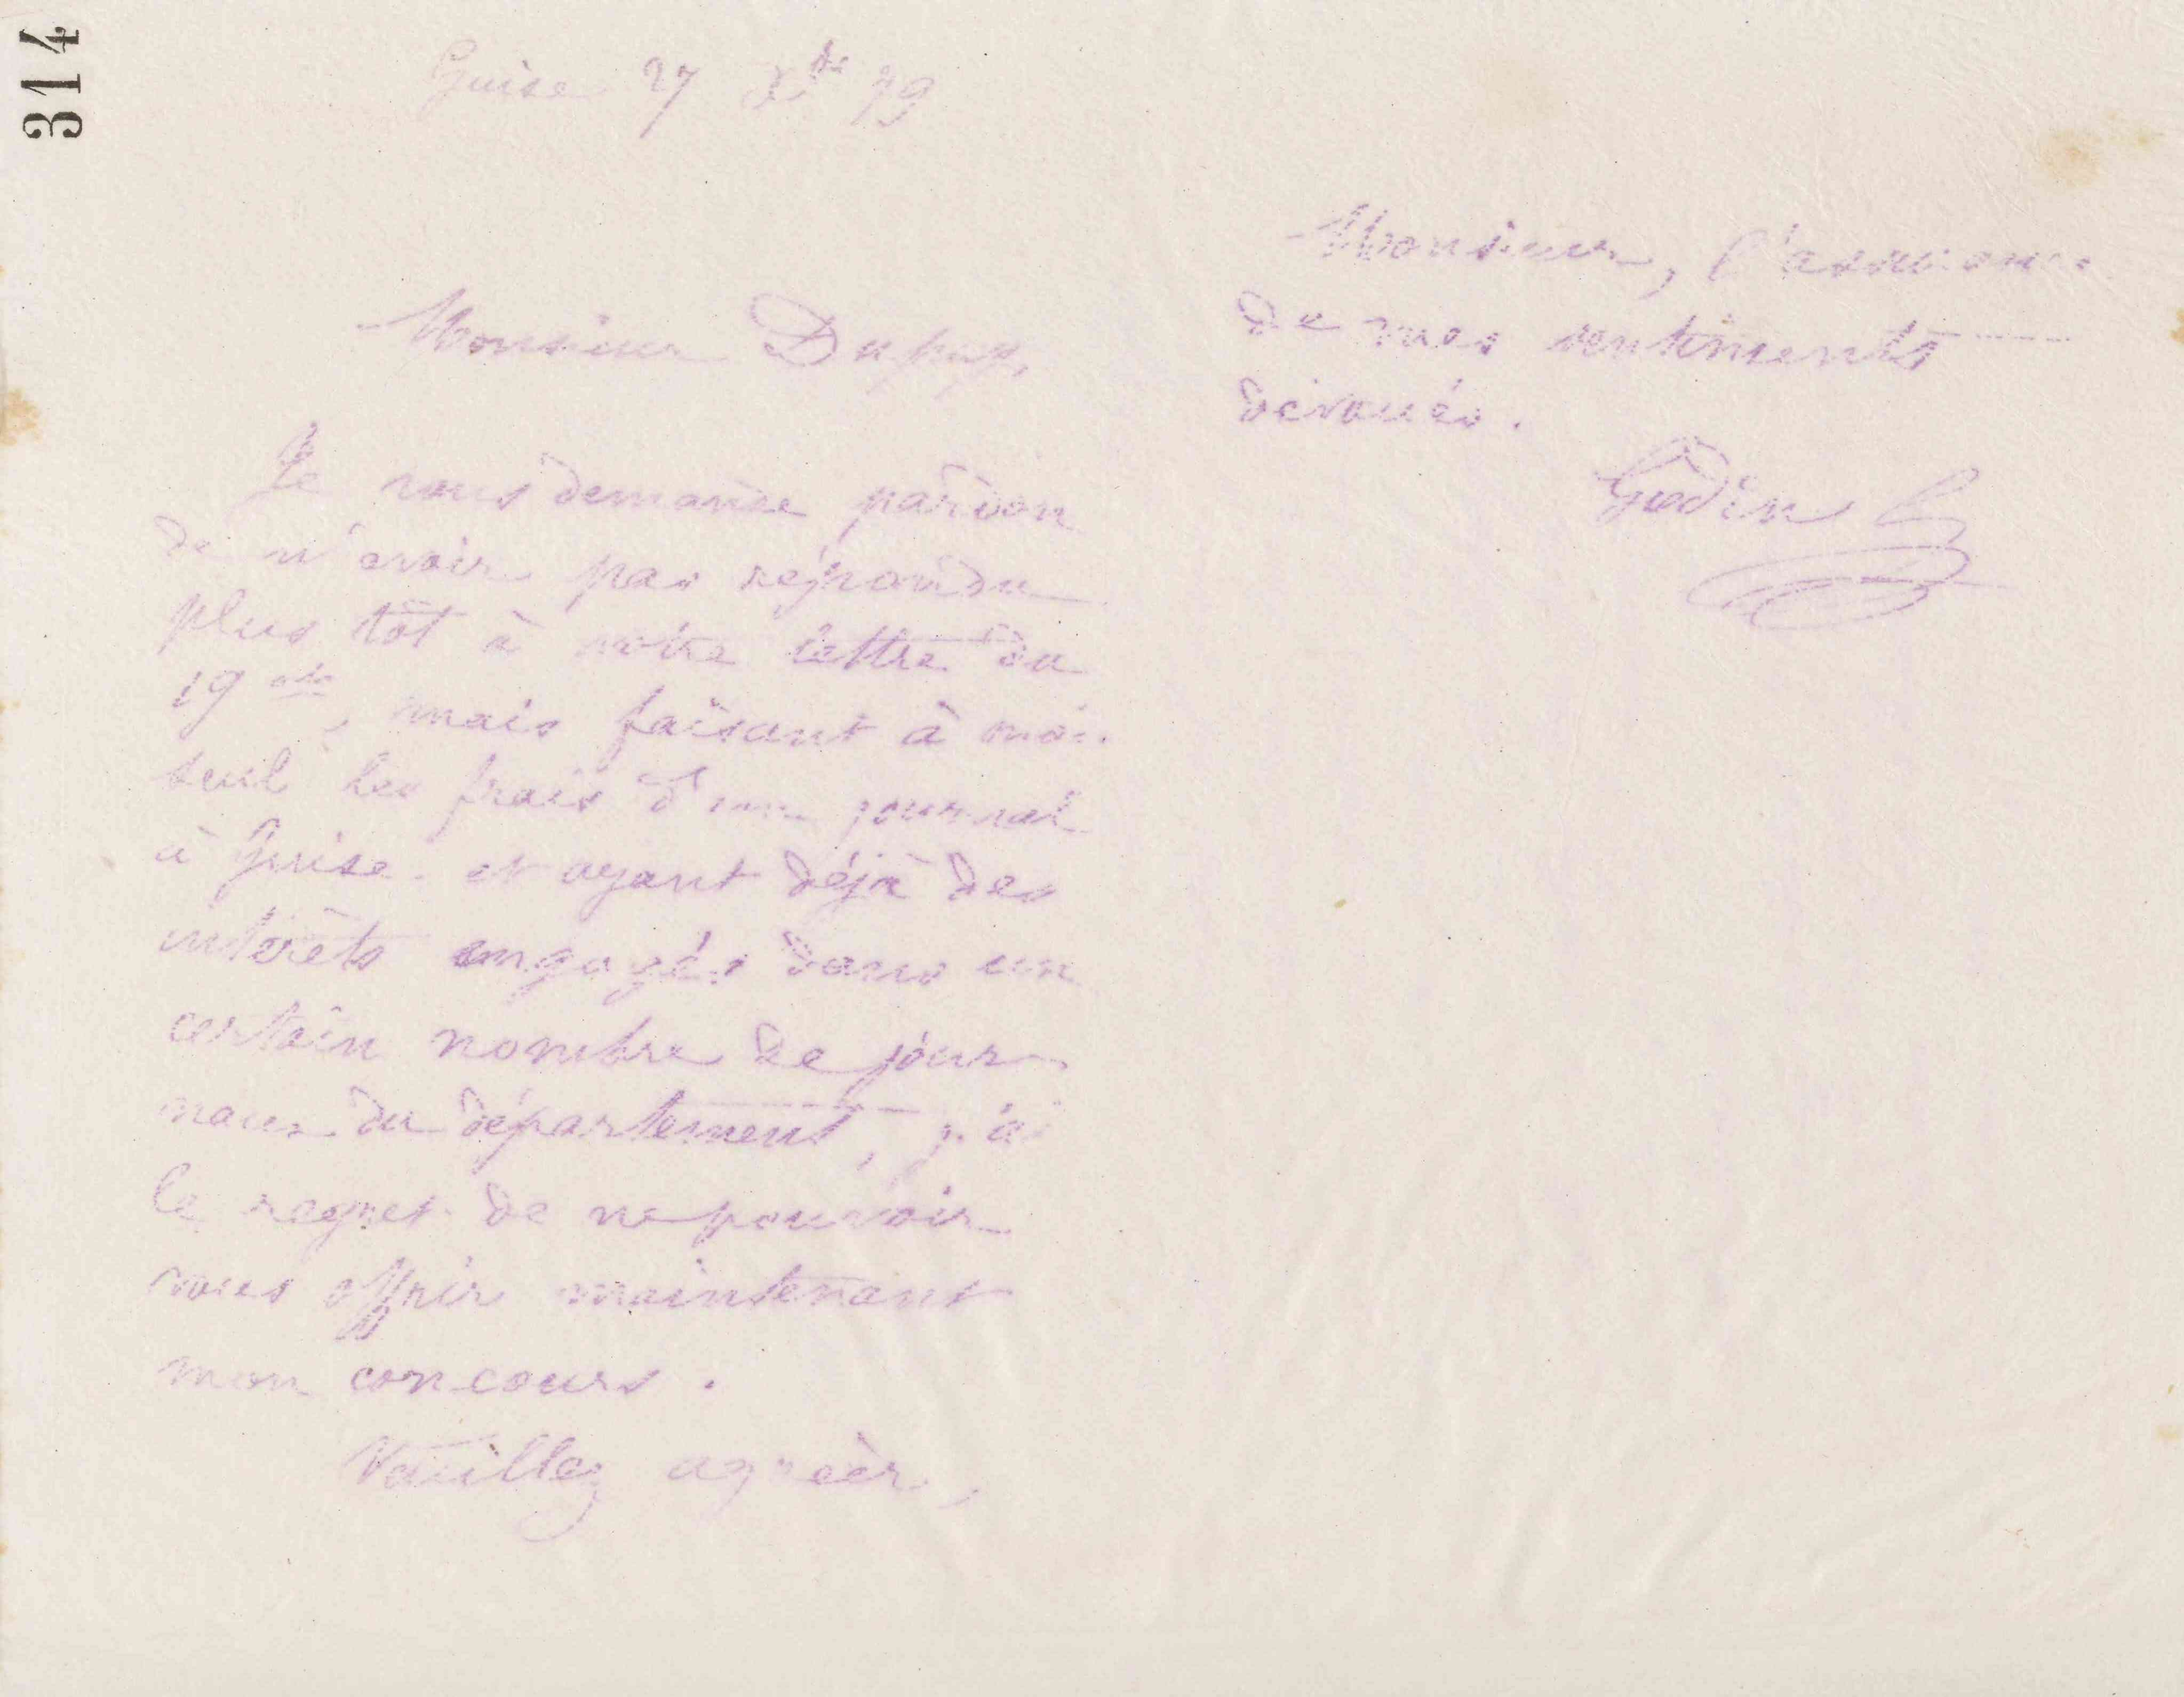 314
Guise 27 Xbre 79
Monsieur Dupuy,
Je vous demande pardon
de n'avoir pas répondu
plus tôt à votre lettre du
19 , mais faisant à moi
seul les frais d'un journal
à Guise et ayant déjà des
intérêts engagés dans un
certain nombre de jour-
naux du département, j'ai
le regret de ne pouvoir
vous offrir maintenant
mon concours.
Veuillez agréer,
Monsieur, l'assurance
de mes sentiments
dévoués.
Godin